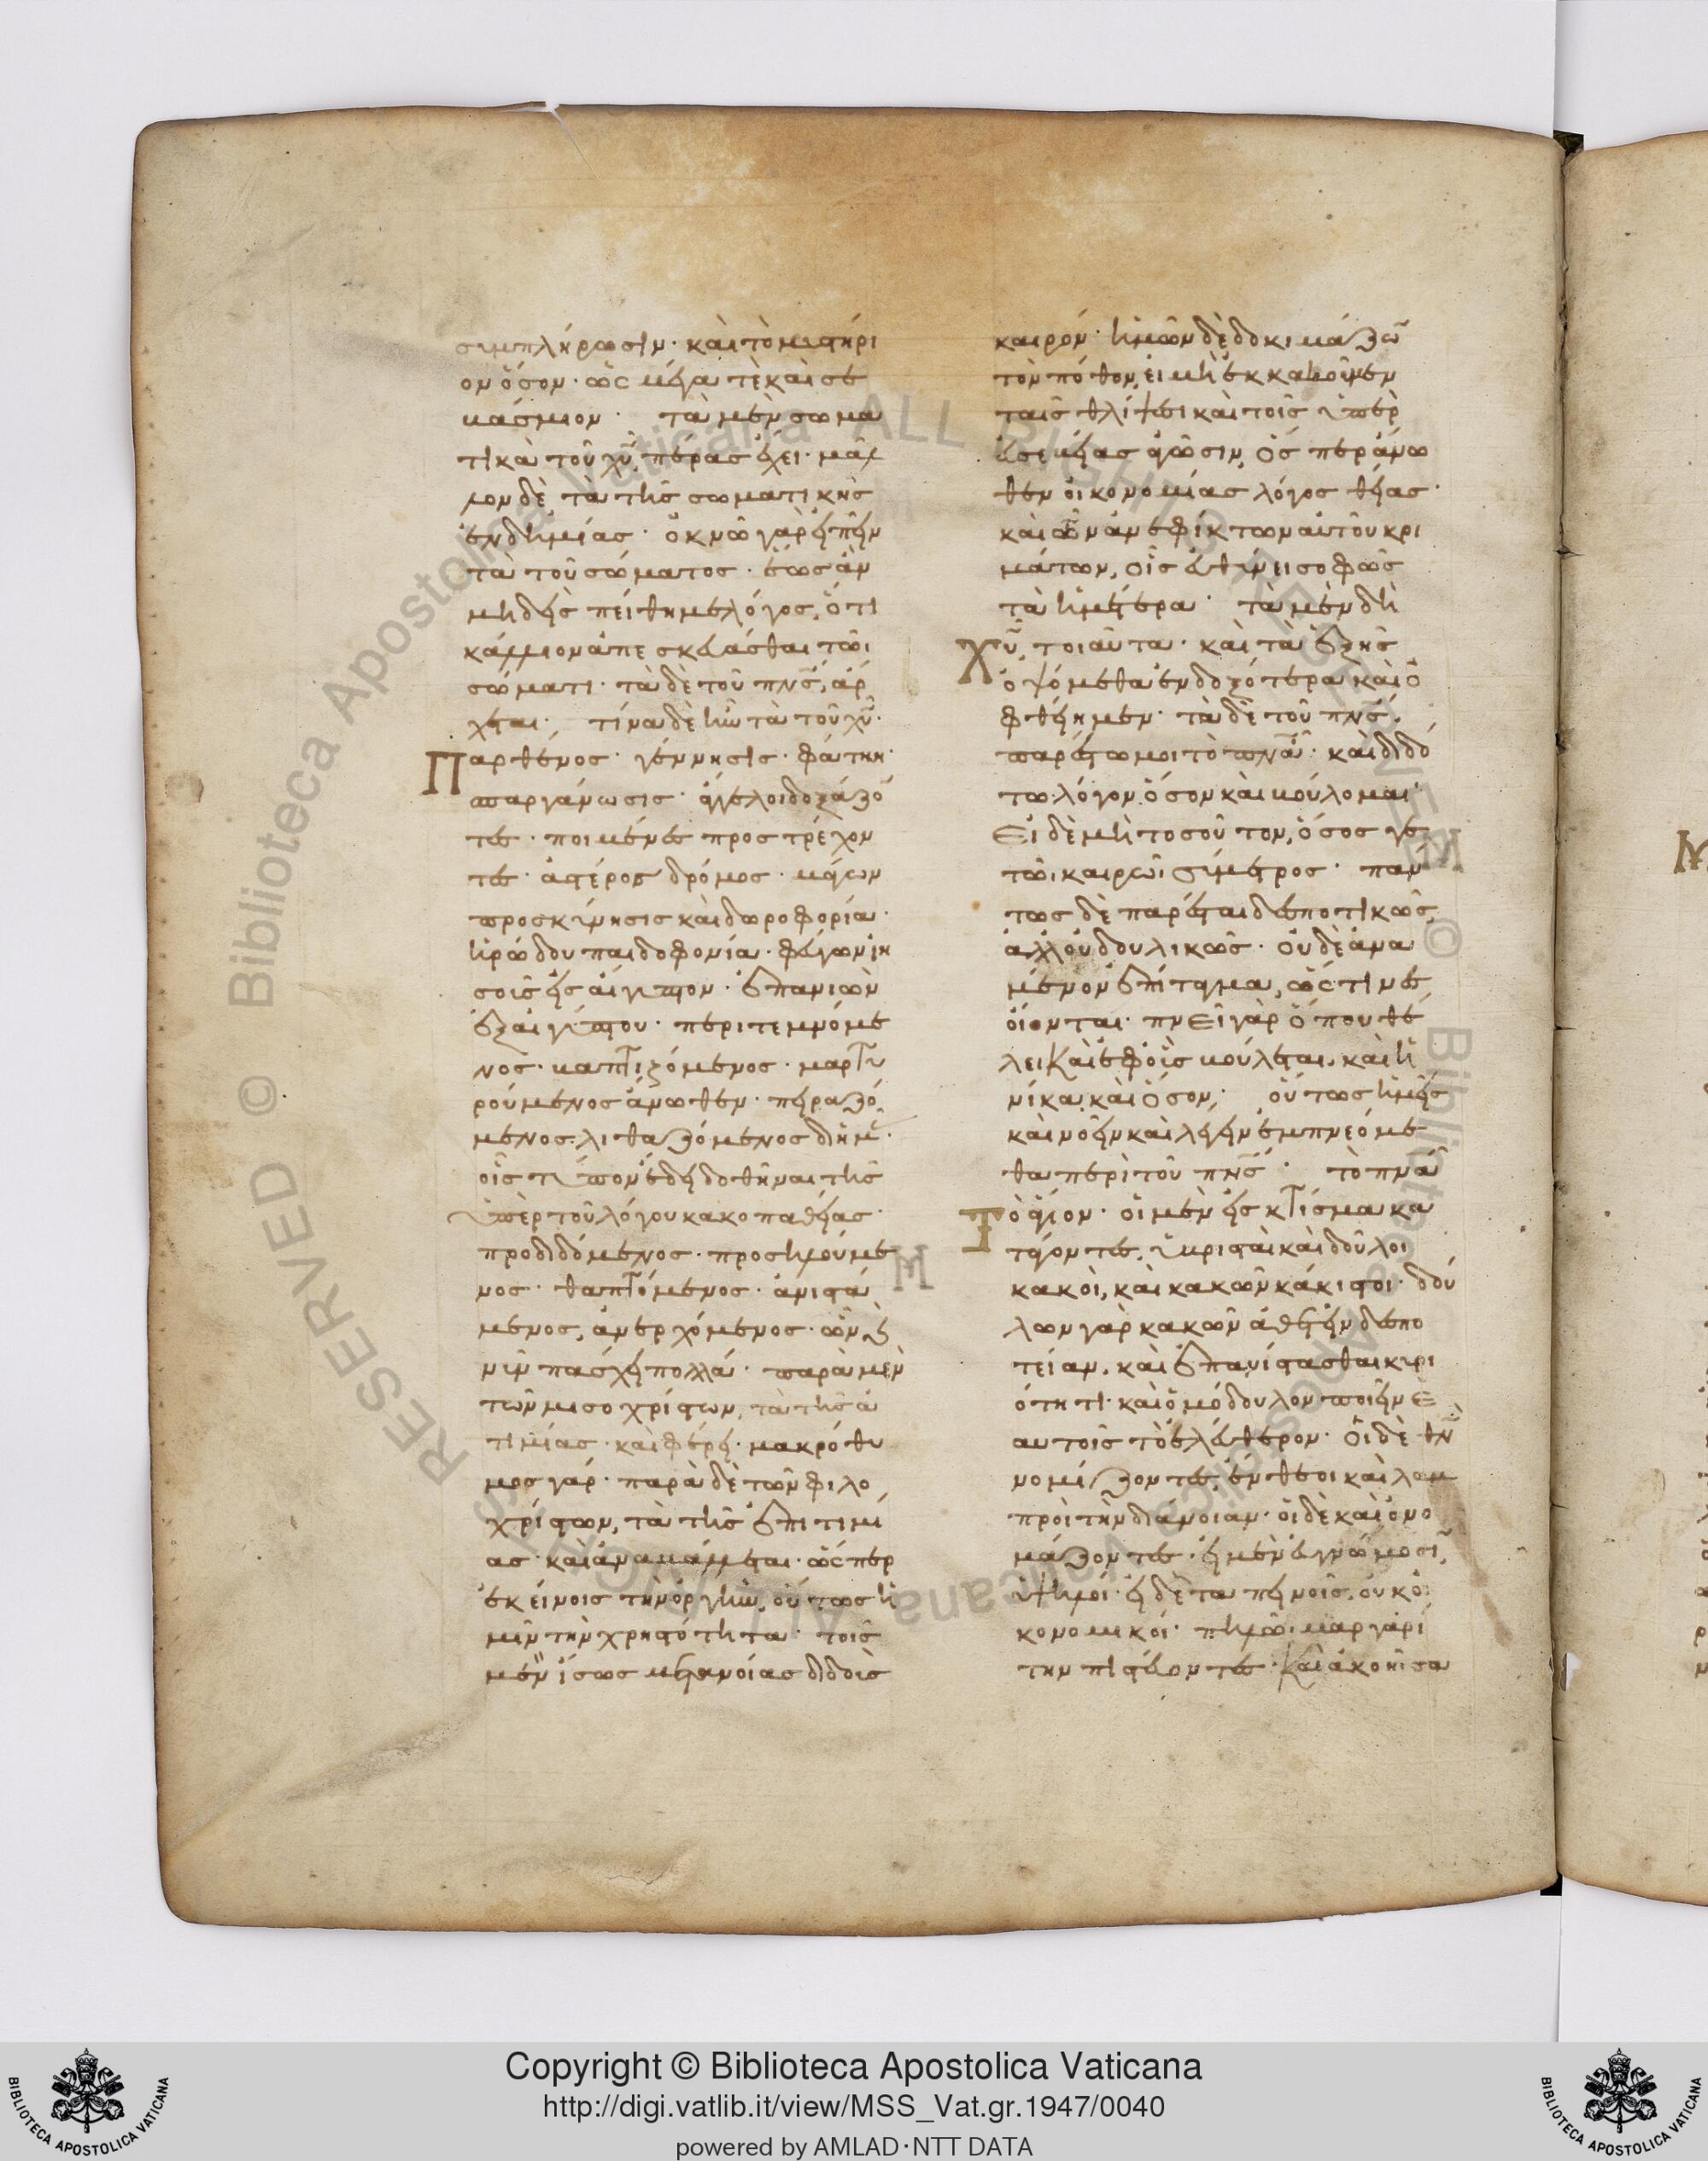 συμπλήρωσιν· καὶ τὸ μυστήρι
ον ὅσον· ὡς μέγα τὲ καὶ σε
βάσμιον· τὰ μὲν σωμα
τικὰ τοῦ χυ̅, πέρας ἔχει· μᾶλ
λον δὲ τὰ τῆς σωματικῆς
ἐνδημίας· ὀκνῶ γὰρ εἰπεῖν
τὰ τοῦ σώματος· ἕως ἂν
μηδεὶς πείθη με λόγος, ὅτι
κάλλιον ἀπεσκευάσθαι τῶι
σώματι· τὰ δὲ τοῦ πνς̅, ἄρ
χεται· τίνα δὲ ἦν τὰ τοῦ χυ̅·
Παρθένος· γέννησις· φάτνη·
σπαργάνωσις· ἄγγελοι δοξάζο
τες· ποιμένες προστρέχον
τες· ἀστέρος δρόμος· μάγων
προσκύνησις καὶ δωροφορία·
ἡρώδου παιδοφονία· φεύγων ἰη
σοῖς εἰς αἴγυπτον· ἐπανιὼν
ἐξ αἰγύπτου· περιτεμνόμε
νος· βαπτιζόμενος· μαρτυ
ρούμενος ἄνωθεν· πειραζό
μενος· λιθαζόμενος δι ἡμᾶ·
οἷς τύπον ἔδει δοθῆναι τῆς
ὑπὲρ τοῦ λόγου κακοπαθείας·
προδιδόμενος· προσηλούμε
νος· θαπτόμενος· ἀνιστά
μενος, ἀνερχόμενος· ὧν καὶ
νῦν πάσχει πολλά· παρὰ μὲν
τῶν μισοχρίστων, τὰ τῆς ἀ
τιμίας· καὶ φέρει· μακρόθυ
μος γάρ· παρὰ δὲ τῶν φιλο
χρίστων, τὰ τῆς ἐπιτιμί
ας· καὶ ἀναβάλλεται· ὥσπερ
ἐκείνοις τὴν ὀργὴν, οὕτως ἡ
μῖν τὴν χρηστότητα· τοῖς
μὲν ἴσως μετανοίας διδοὺς
καιρόν· ἡμῶν δὲ δοκιμάζω
τὸν πόθον, εἰ μὴ ἐκκακοῖμεν
ταῖς θλίψεσι καὶ τοῖς ὑπὲρ
εὐσεβείας ἀγῶσιν, ὅσπερ ἄνω
θεν οἰκονομίας λόγος θείας·
καὶ τῶν ἀνεφίκτων αὐτοῦ κρι
μάτων, οἷς εὐθύνει σοφῶς
τὰ ἡμέτερα· τὰ μὲν δὴ
Χυ̅, τοιαῦτα· καὶ τὰ ἑξῆς
ὀψόμεθα ἐνδοξότερα καὶ ὀ
φθείημεν· τὰ δὲ τοῦ πνς̅.
παρέστω μοι τὸ πνα̅· καὶ διδό
τω λόγον ὅσον καὶ βούλομαι·
Εἰ δὲ μὴ τοσοῦτον, ὅσος γε
τῶι καιρῶι σύμμετρος· πάν
τως δὲ παρέσται δεσποτικῶς,
ἀλλ' οὐ δουλικῶς· οὐδὲ ἀνα
μένον ἐπίταγμα, ὥς τινες
οἴονται· πνεῖ γὰρ ὅπου θέ
λει καὶ ἐφ' οὓς βούλεται, καὶ ἡ
νίκα, καὶ ὅσον, οὕτως ἡμεῖς
καὶ νοεῖν καὶ λέγειν ἐμπνεόμε
θα περὶ τοῦ πνς̅· τὸ πνα̅
Τὸ ἅγιον· οἱ μὲν εἰς κτίσμα κα
τάγοντες, ὑβρισταὶ καὶ δοῦλοι
κακοὶ, καὶ κακῶν κάκιστοι· δού
λων γὰρ κακῶν ἀθετεῖν δεσπο
τείαν, καὶ ἐπανίστασθαι κυρι
ότητι· καὶ ὁμόδουλον ποιεῖν ἑ
αυτοῖς τὸ ἐλεύθερον· οἱ δὲ θν
νομίζοντες, ἔνθεοι καὶ λαμ
προὶ τὴν διάνοιαν· οἱ δὲ καὶ ὀνο
μάζοντες· εἰ μὲν εὐγνώμοσι,
ὑψηλοί· εἰ δὲ ταπεινοῖς, οὐκ οἰ
κονομικοί· πηλῶ μαργαρί
την πιστεύοντες· καὶ ἀκοῆι σα